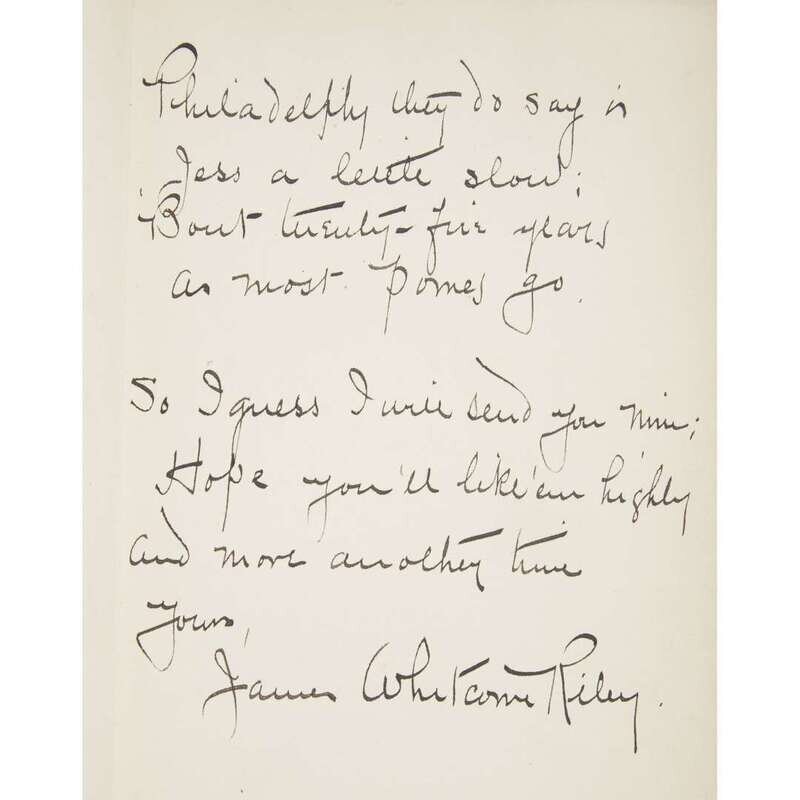 Philadelphy they do say is
Jess a leetle slow;
'Bout twenty-five years
as most pomes go.
So I guess I will send you mine;
Hope you'll like 'em highly
and more another time
Yours,
James Whitcome Riley.